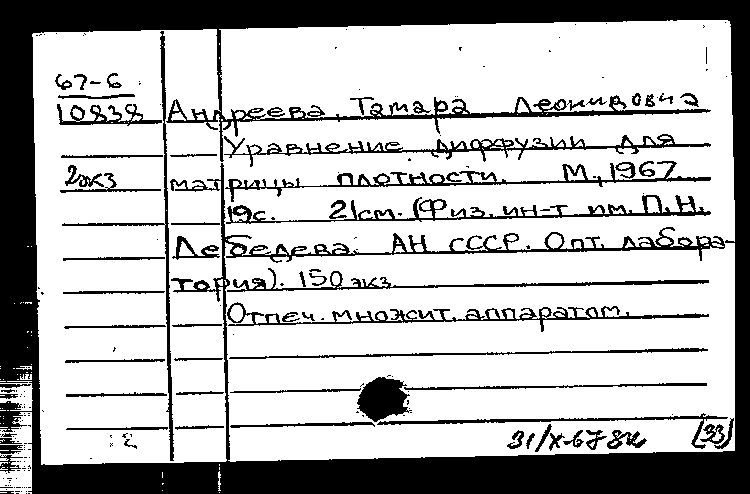 67-6
10838 Андреева, Тамара Леонидовна
Уравнение диффузии для
2экз матрицы плотности. М., 1967.
19с. 21см. (Физ. ин-т им. П.Н.
Лебедева. АН СССР. Опт. лабора-
тория). 150 экз.
Отпеч. множит. аппаратом.
31/X-67 (33)